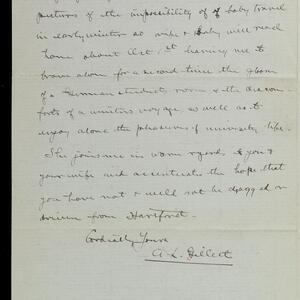 pictures of the impossibility of baby travel
in early winter so wife & Baby will reach
home about Oct 1st leaving me to
brave alone for a second time the gloom
of a German student's room & the discom-
forts of a winter's voyage as well as to
enjoy alone the pleasures of university life.
She joins me in warm regards to you &
your wife and accentuates the hope that
you have not & will not be dragged or
driven from Hartford.
Cordially Yours
A. L. Gillett